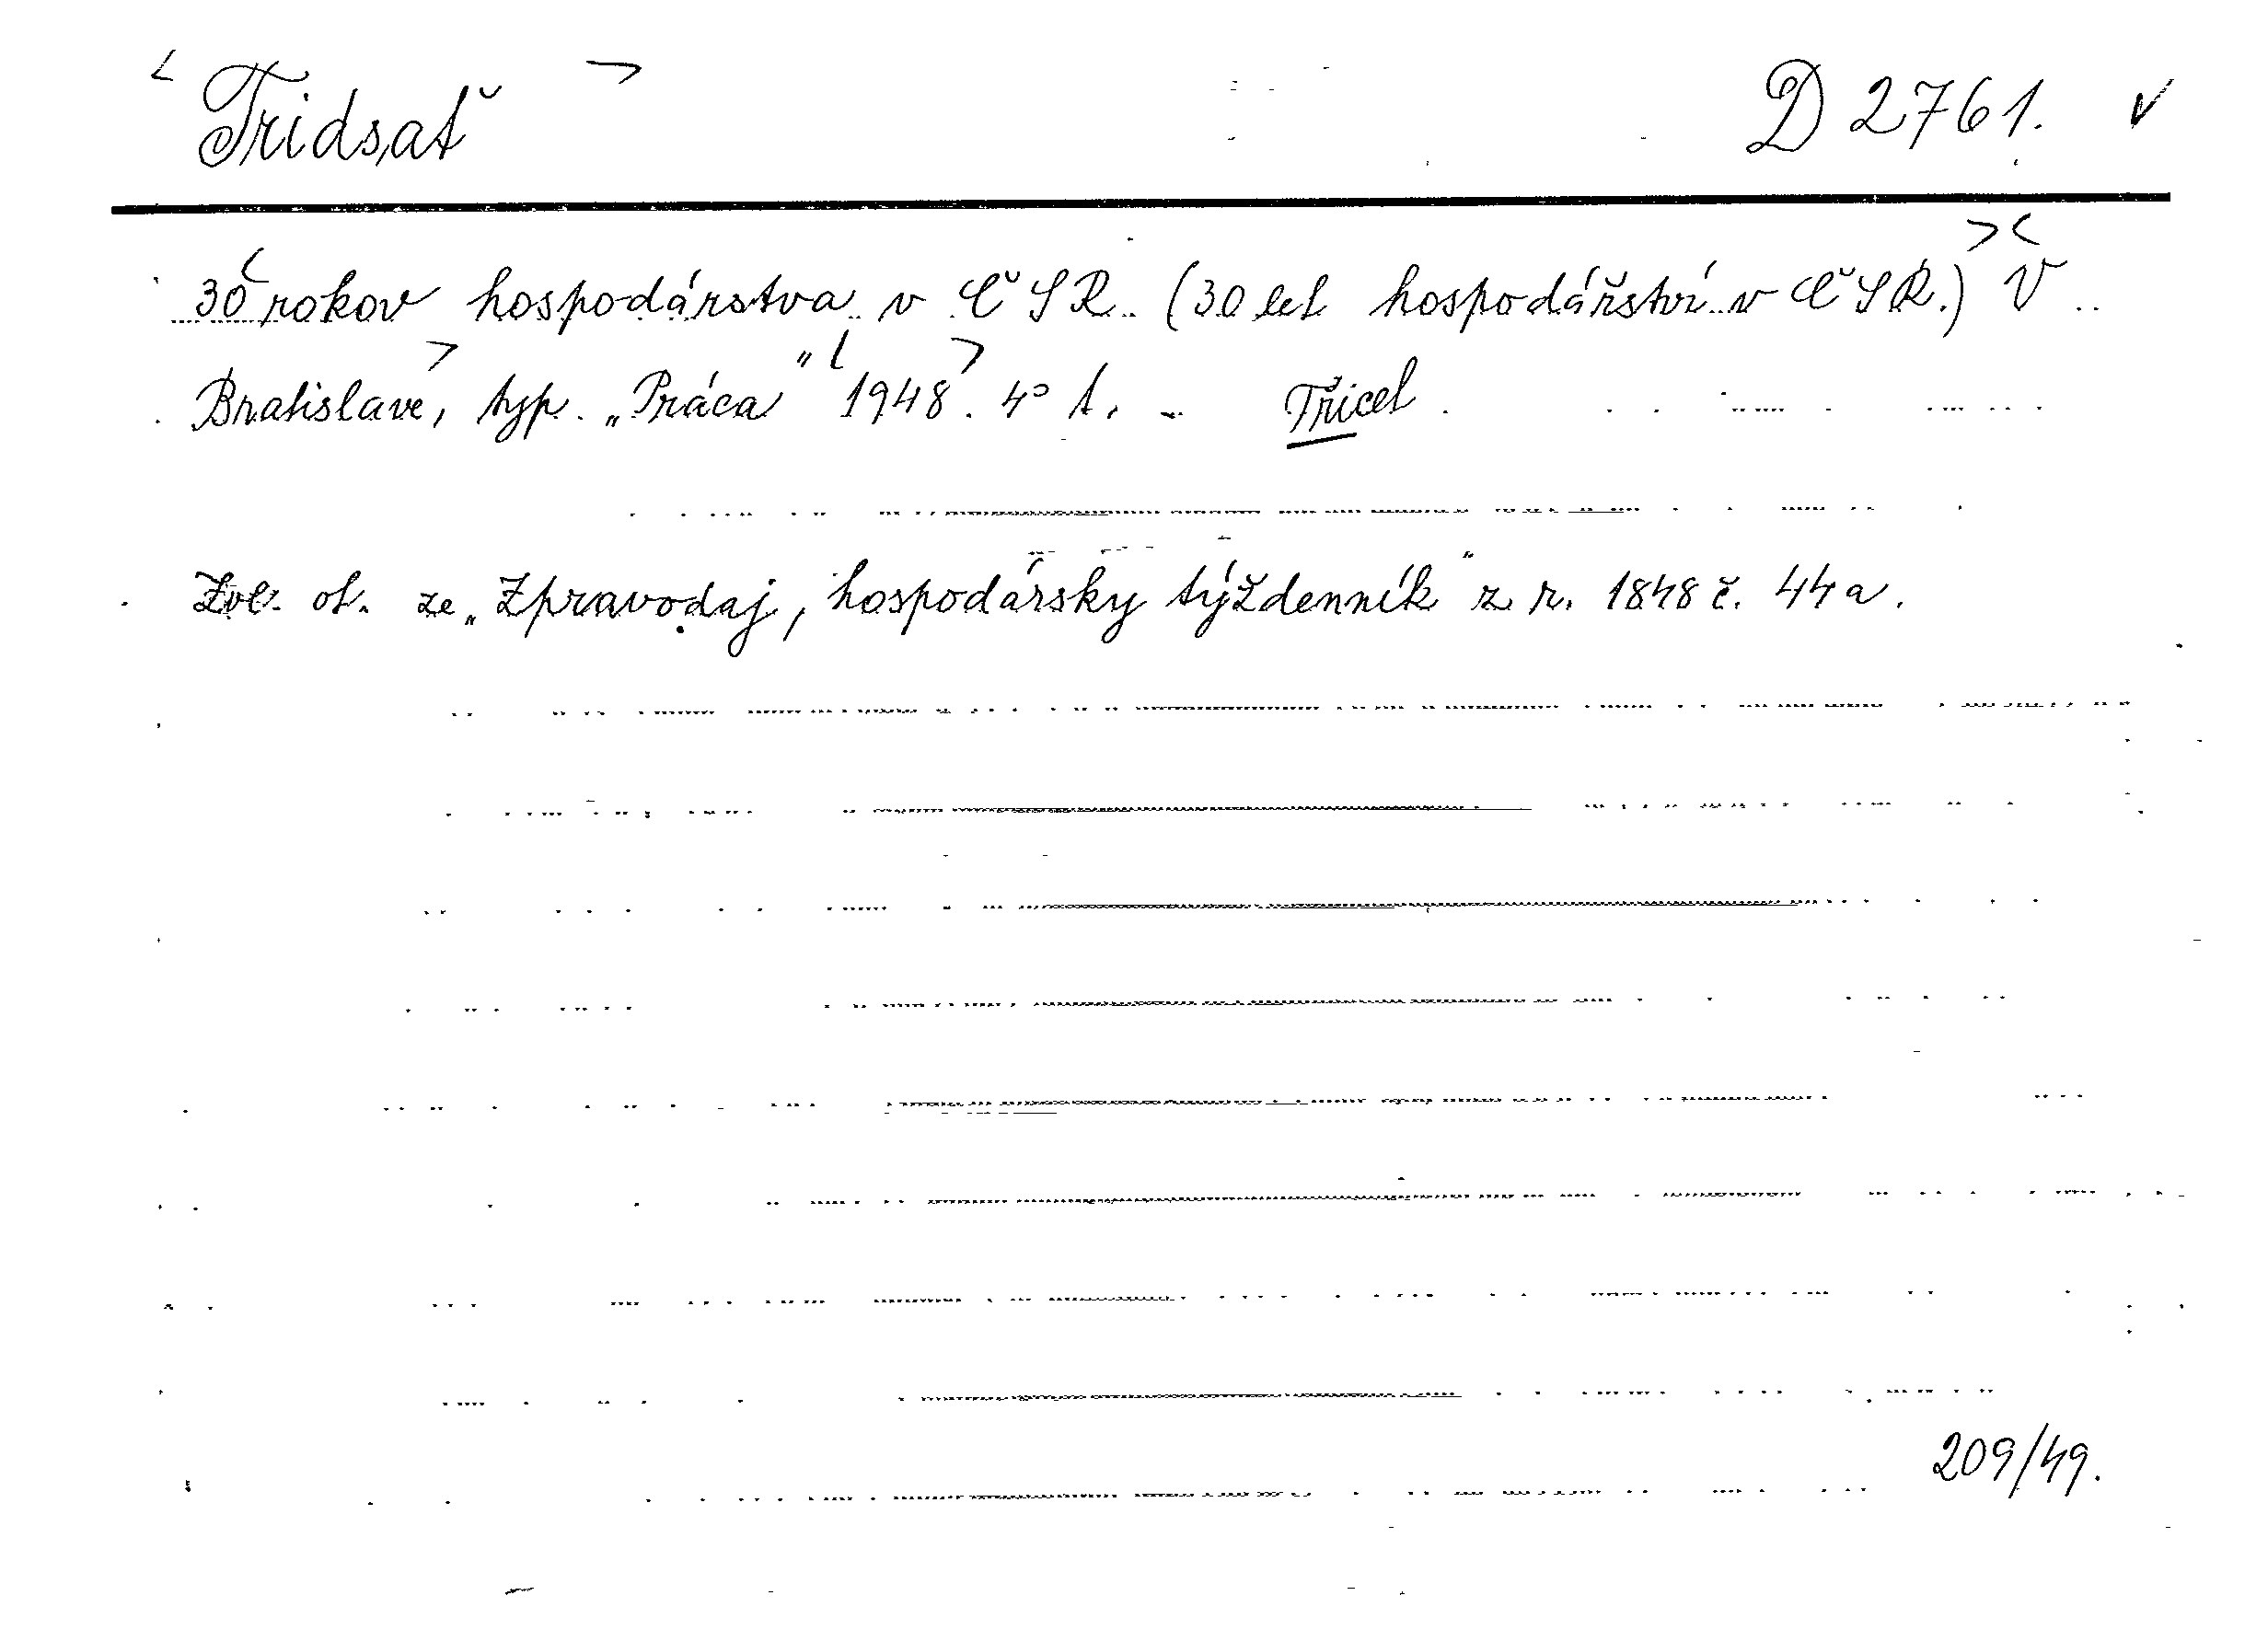 Tridsať D 2761. ✓
30 rokov hospodárstva v ČSR. (30 let hospodářství v ČSR.) V
Bratislavě, typ. „Práca" 1948. 4° t. - Třicet
Zvl. ot. ze „Zpravodaj, hospodářsky týždenník" z r. 1848 č. 44a.
209/49.